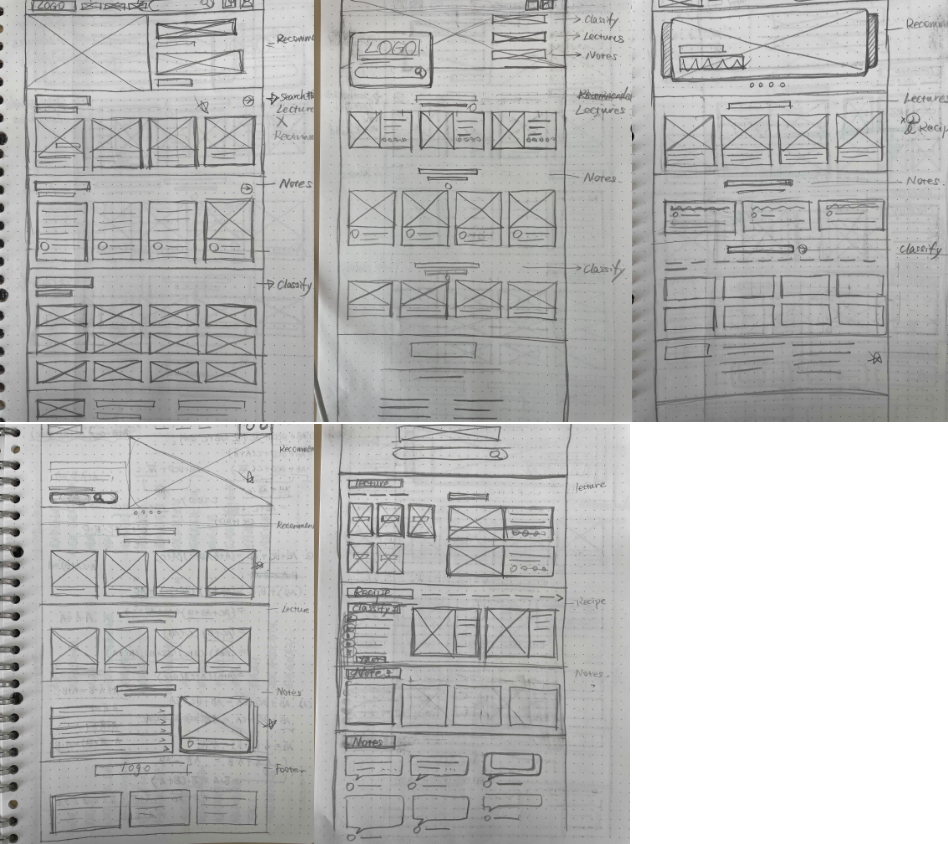 LOGO
Recomm
Search th
Lecture
X
Recomm
Notes
Classify
LOGO
Classify
Lectures
Notes
Recommended
Lectures
Notes.
Classify
Recomm
Lectures
Recip
Notes.
classify
Recomm
Recommen
Lecture
Notes
Logo
Footer
lecture
lecture
Recipe
Classify
Recipe
Notes
Notes.
Notes